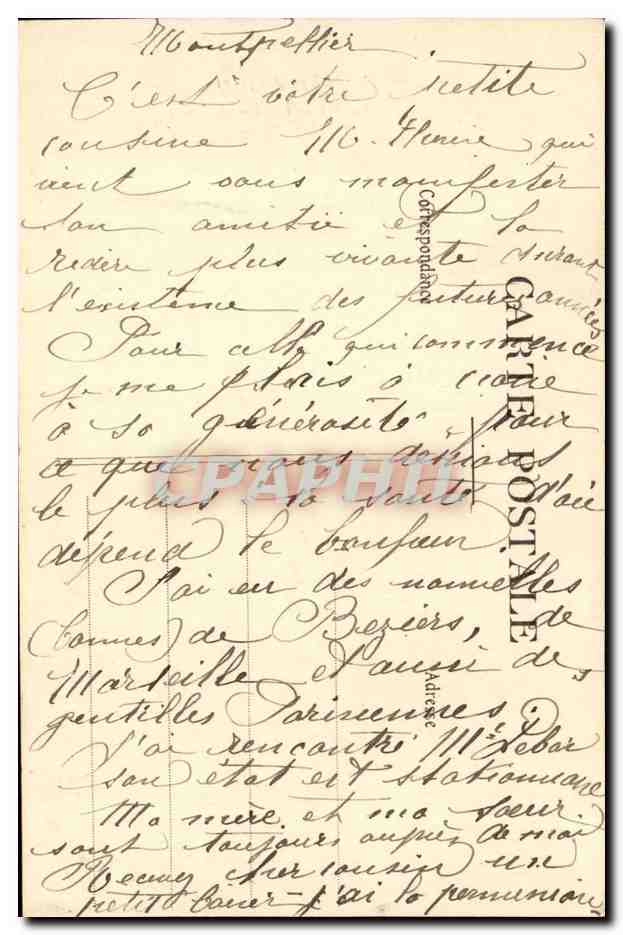 Montpellier
C'est votre petite
cousine M. qui
vient vous manifester
son amitié et la
redire plus vivante durant
l'existence des futures années
Pour celle qui commence
je me plais à croire
à sa générosité pour
ce que nous désirons
le plus la santé d'où
dépend le bonheur
J'ai eu des nouvelles
(bonnes) de Beziers, de
Marseille et aussi des
gentilles Parisiennes.
J'ai rencontré Mr Lebar
son état est stationnaire
Ma mère et ma sœur
sont toujours auprès de moi
Recevez cher cousin un
petit baiser - j'ai la permission
Correspondance
CARTE POSTALE
Adresse
CPAPHIL